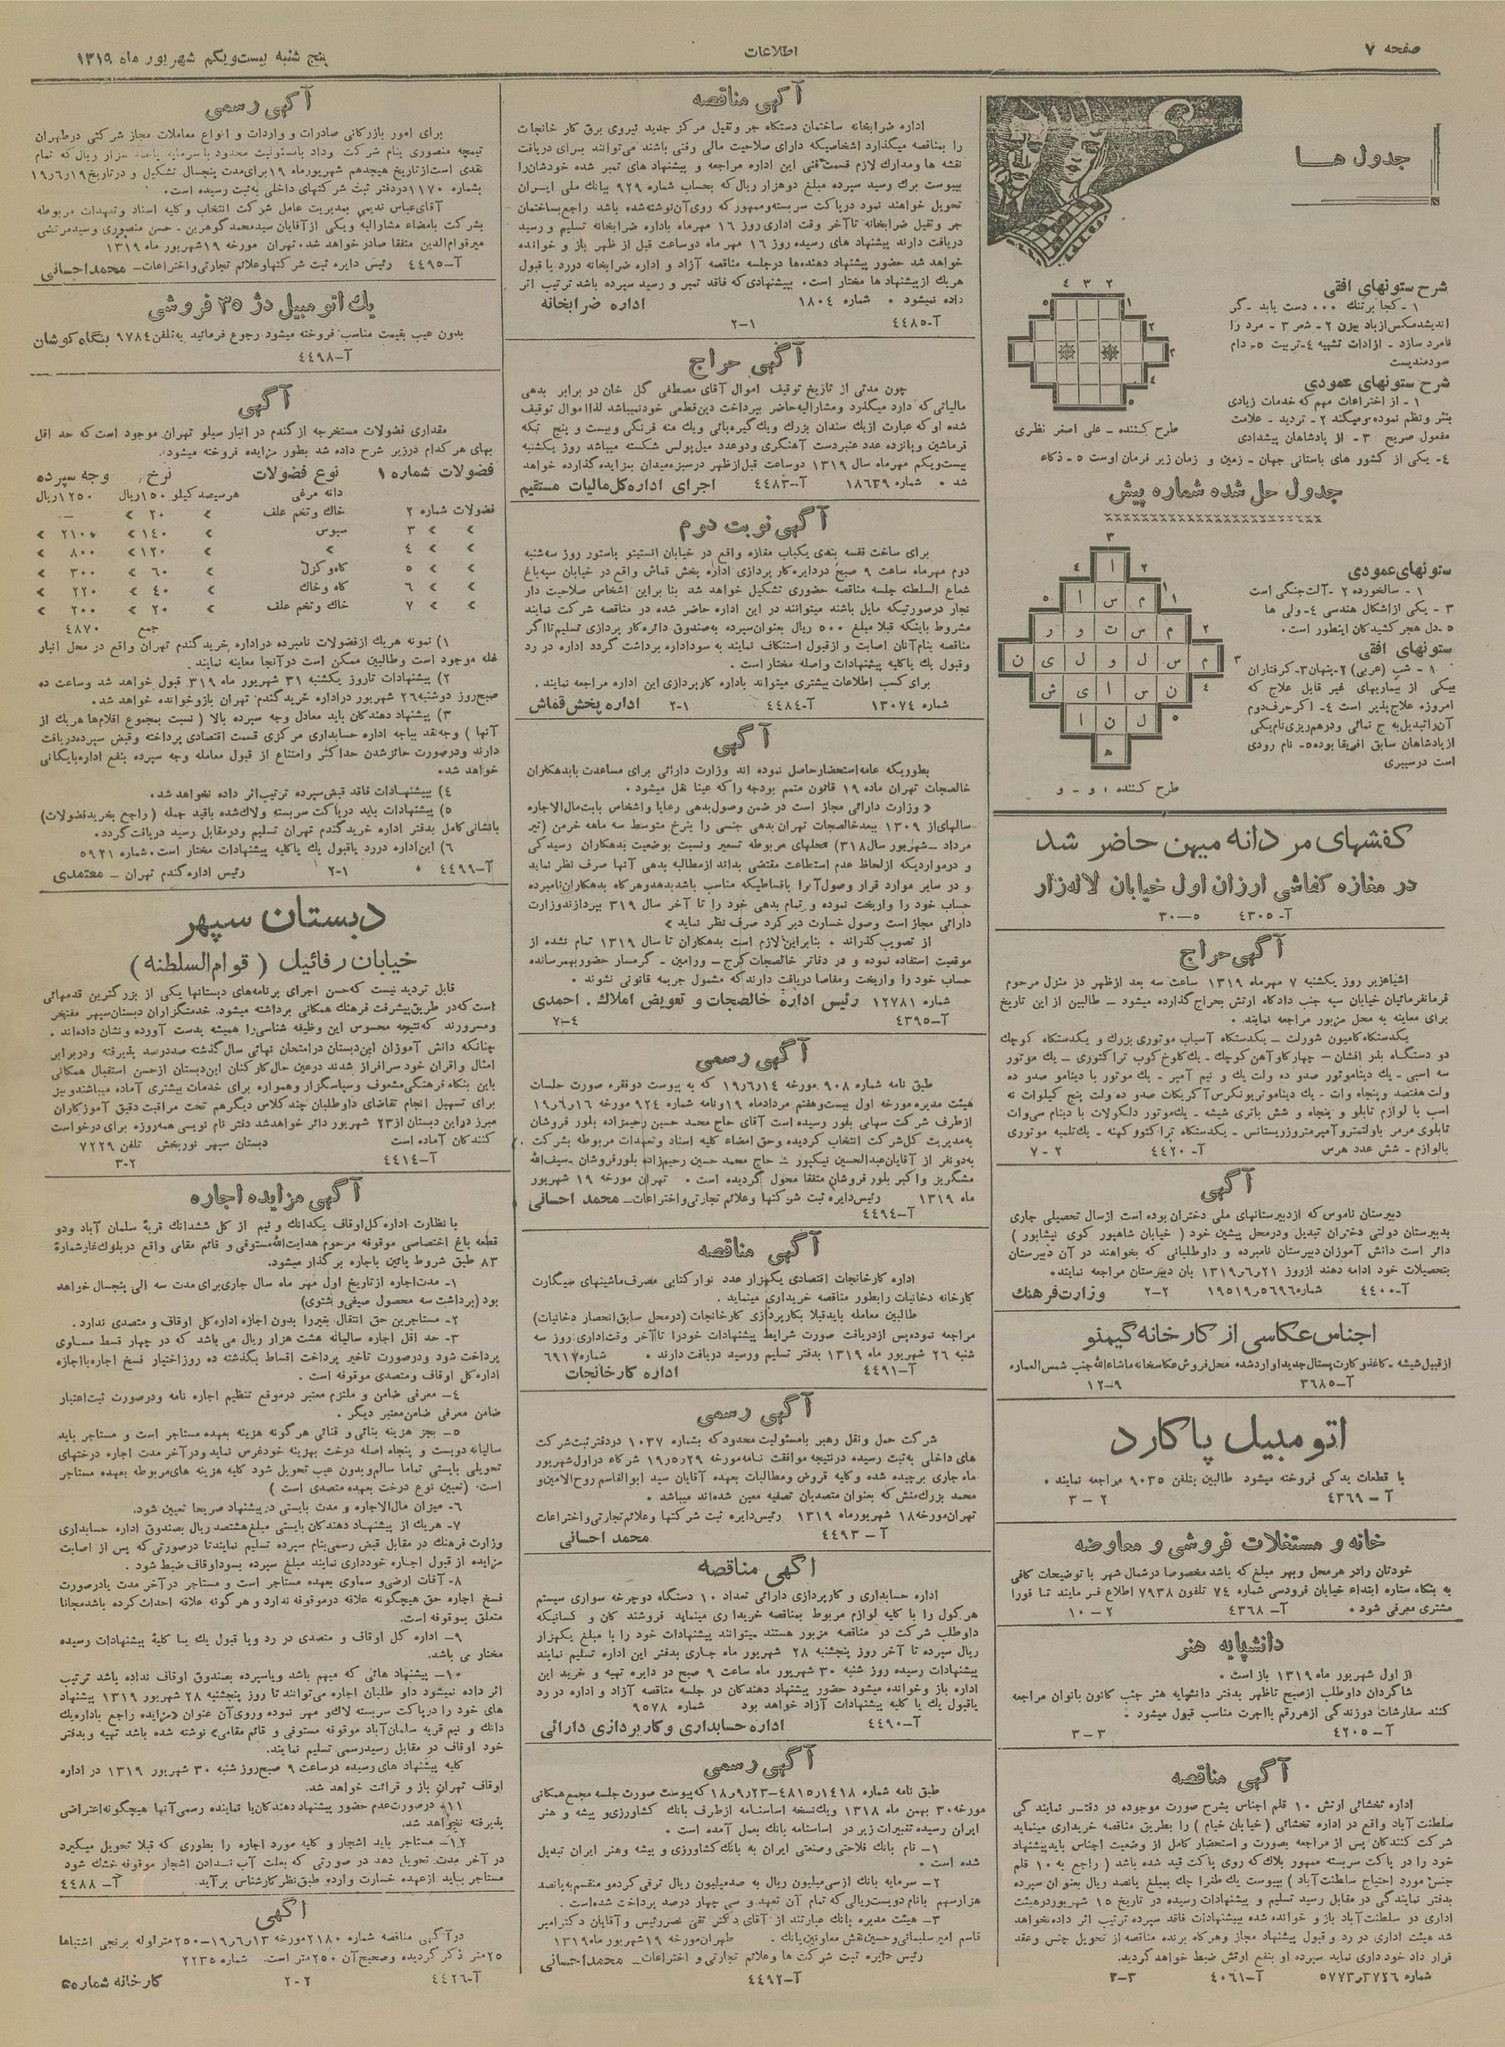 صفحه ۷
اطلاعات
پنج شنبه بیست‌ویکم شهریور ماه ۱۳۱۹
جدول ها
شرح ستونهای افقی
شرح ستونهای عمودی
۱ - از اختراعات مهم که خدمات زیادی
بنثر ونظم نموده ومیکند ۲ - تردید - علامت
مفعول صریح ۳ - از پادشاهان پیشدادی
۴- یکی از کشور های باستانی جهان - زمین و زمان زیر فرمان اوست ۵ - ذکاء
طرح کننده - علی اصغر نظری
جدول حل شده شماره پیش
ستونهای عمودی
۱ - سالخورده ۲ - آلت جنگی است
۳ - یکی ازاشکال هندسی ۴- ولی ها
۵ - دل هجر کشیدگان اینطور است .
ستونهای افقی
۱ - شب (عربی) ۲- پنهان ۳- گرفتاران
بیکی از بیماریهای غیر قابل علاج که
امروزه علاج پذیر است ۴ - اگر حرف دوم
طرح کننده ، و - و
کفشهای مردانه میهن حاضر شد
در مغازه کفاشی ارزان اول خیابان لاله‌زار
آ- ۴۳۰۵ ۵—۳۰
آگهی حراج
اشیاءزیر روز یکشنبه ۷ مهرماه ۱۳۱۹ ساعت سه بعد ازظهر در منزل مرحوم
فرمانفرمائیان خیابان سپه جنب دادگاه ارتش بحراج گذارده میشود - طالبین از این تاریخ
برای معاینه به محل مزبور مراجعه نمایند .
یکدستگاه کامیون شورلت - یکدستگاه آسیاب موتوری بزرك و یکدستگاه کوچك
بالوازم - شش عدد هرس آ- ۴۴۲۰ ۲ - ۷
آگهی
دبیرستان ناموس که ازدبیرستانهای ملی دختران بوده است ازسال تحصیلی جاری
بدبیرستان دولتی دختران تبدیل ودرمحل پیشین خود ( خیابان شاهپور کوی نیشابور )
دائر است دانش آموزان دبیرستان نامبرده و داوطلبانی که بخواهند در آن دبیرستان
بتحصیلات خود ادامه دهند ازروز ۲۱ر۶ر۱۳۱۹ بان دبیرستان مراجعه نمایند.
آ-۴۴۰۰ شماره ۵۶۹۶ر۱۹۵۱۹ ۲-۲ وزارت فرهنگ
اجناس عکاسی از کارخانه گیمنو
ازقبیل شیشه - کاغذ و کارت پستال جدیدا وارد شده محل فروش عکاسخانه ماشاءالله جنب شمس العماره
آ-۳۶۸۵ ۹-۱۲
اتومبیل پاکارد
با قطعات یدکی فروخته میشود طالبین بتلفن ۹۰۳۵ مراجعه نمایند .
آ - ۴۳۶۹ ۲ - ۳
خانه و مستغلات فروشی و معاوضه
خودتان رادر هرمحل وبهر مبلغ که باشد مخصوصا درشمال شهر با توضیحات کافی
به بنگاه ستاره ابتداء خیابان فردوسی شماره ۷۴ تلفون ۷۹۳۸ اطلاع فرمایند تا فورا
مشتری معرفی شود . آ- ۴۳۶۸ ۲ - ۱۰
دانشپایه هنر
از اول شهریور ماه ۱۳۱۹ باز است .
شاگردان داوطلب ازصبح تاظهر بدفتر دانشپایه هنر جنب کانون بانوان مراجعه
کنند سفارشات دوزندگی ازهرقم بااجرت مناسب قبول میشود .
آ- ۴۲۰۵ ۳-۳
آگهی مناقصه
اداره تخشائی ارتش ۱۰ قلم اجناس بشرح صورت موجوده در دفتر نمایندگی
سلطنت آباد واقع در اداره تخشائی ( خیابان خیام ) را بطریق مناقصه خریداری مینماید
شرکت کنندگان پس از مراجعه بصورت و استحضار کامل از وضعیت اجناس بایدپیشنهاد
خود را در پاکت سربسته ممهور بلاك که روی پاکت قید شده باشد ( راجع به ۱۰ قلم
جنس مورد احتیاج سلطنت‌آباد ) بپیوست یك طغرا چك بمبلغ پانصد ریال بعنوان سپرده
بدفتر نمایندگی در مقابل رسید تسلیم و پیشنهادات رسیده در تاریخ ۱۵ شهریوردرهیئت
اداری در سلطنت آباد باز و خوانده شده بپیشنهادات فاقد سپرده ترتیب اثر داده نخواهد
شد هیئت اداری در رد و قبول پیشنهاد مجاز وهرگاه برنده مناقصه از تحویل جنس وعقد
قرار داد خود داری نماید سپرده او بنفع ارتش ضبط خواهد گردید.
شماره ۳۷۲۶ر۵۷۷۳ آ-۴۰۶۱ ۳-۳
آگهی مناقصه
اداره ضرابخانه ساختمان دستگاه جر وثقیل مرکز جدید نیروی برق کار خانجات
را بمناقصه میگذارد اشخاصیکه دارای صلاحیت مالی وفنی باشند می‌توانند برای دریافت
نقشه ها ومدارك لازم قسمت فنی این اداره مراجعه و پیشنهاد های تمبر شده خودشان‌را
بپیوست برك رسید سپرده مبلغ دوهزار ریال که بحساب شماره ۹۲۹ ببانك ملی ایران
تحویل خواهند نمود درپاکت سربسته وممهور که روی آن نوشته شده باشد راجع بساختمان
جر و ثقیل ضرابخانه تاآخر وقت اداری روز ۱۶ مهرماه باداره ضرابخانه تسلیم و رسید
دریافت دارند پیشنهاد های رسیده روز ۱۶ مهر ماه دوساعت قبل از ظهر باز و خوانده
خواهد شد حضور پیشنهاد دهنده‌ها درجلسه مناقصه آزاد و اداره ضرابخانه دررد یا قبول
هریك ازپیشنهاد ها مختار است . بپیشنهادی که فاقد تمبر و رسید سپرده باشد ترتیب اثر
داده نمیشود . شماره ۱۸۰۴ اداره ضرابخانه
آ-۴۴۸۵ ۱-۲
آگهی حراج
چون مدتی از تاریخ توقیف اموال آقای مصطفی گل خان در برابر بدهی
مالیاتی که دارد میگذرد ومشارالیه حاضر بپرداخت دین قطعی خودنمیباشد لذا اموال توقیف
شده او که عبارت ازیك سندان بزرك ویك گیره پائی ویك مته فرنگی وبیست و پنج تیکه
فرماشین وپانزده عدد عنبر دست آهنگری ودوعدد میل پولس شکسته میباشد روز یکشنبه
بیست‌ویکم مهرماه سال ۱۳۱۹ دوساعت قبل ازظهر درسبزه میدان بمزایده گذارده خواهد
شد . شماره ۱۸۶۳۹ آ-۴۴۸۳ اجرای اداره کل مالیات مستقیم
آگهی نوبت دوم
برای ساخت قفسه بندی یکباب مغازه واقع در خیابان انستیتو پاستور روز سه‌شنبه
دوم مهرماه ساعت ۹ صبح دردایره کار پردازی اداره پخش قماش واقع در خیابان سپه باغ
شعاع السلطنه جلسه مناقصه حضوری تشکیل خواهد شد بنا براین اشخاص صلاحیت دار
نجار درصورتیکه مایل باشند میتوانند در این اداره حاضر شده در مناقصه شرکت نمایند
مشروط باینکه قبلا مبلغ ۵۰۰ ریال بعنوان سپرده به‌صندوق دائره کار پردازی تسلیم تااگر
مناقصه بنام آنان اصابت و ازقبول استنکاف نمایند به سوداداره برداشت گردد اداره در رد
وقبول یك یاکلیه پیشنهادات واصله مختار است .
برای کسب اطلاعات بیشتری میتواند باداره کارپردازی این اداره مراجعه نمایند .
شماره ۱۳۰۷۴ آ-۴۴۸۴ ۱-۲ اداره پخش قماش
آگهی
بطوریکه عامه استحضارحاصل نموده اند وزارت دارائی برای مساعدت بابدهکاران
خالصجات تهران ماده ۱۹ قانون متمم بودجه را که عینا نقل میشود .
« وزارت دارائی مجاز است در ضمن وصول بدهی رعایا واشخاص بابت مال‌الاجاره
سالهای‌از ۱۳۰۹ ببعد خالصجات تهران بدهی جنسی را بنرخ متوسط سه ماهه خرمن (تیر
مرداد - شهریور سال ۳۱۸) محلهای مربوطه تسعیر ونسبت بوضعیت بدهکاران رسیدگی
و درمواردیکه ازلحاظ عدم استطاعت مقتضی بداند ازمطالبه بدهی آنها صرف نظر نماید
و در سایر موارد قرار وصول آنرا باقساطیکه مناسب باشد بدهد وهرگاه بدهکاران نامبرده
حساب خود را واریخت نموده و تمام بدهی خود را تا آخر سال ۳۱۹ بپردازند وزارت
دارائی مجاز است وصول خسارت دیر کرد صرف نظر نماید »
از تصویب گذراند . بنابراین لازم است بدهکاران تا سال ۱۳۱۹ تمام نشده از
موقعیت استفاده نموده و در دفاتر خالصجات کرج - ورامین - گرمسار حضور بهمرسانده
حساب خود را واریخت ومفاصا دریافت دارند که مشمول جریمه قانونی نشوند .
شماره ۱۲۷۸۱ رئیس اداره خالصجات و تعویض املاك . احمدی
آ-۴۳۹۵ ۴-۷
آگهی رسمی
طبق نامه شماره ۹۰۸ مورخه ۱۴ر۶ر۱۹ که به پیوست دوفقره صورت جلسات
هیئت مدیره مورخه اول بیست وهفتم مردادماه ۱۹ ونامه شماره ۹۲۴ مورخه ۱۶ر۶ر۱۹
ازطرف شرکت سهامی بلور رسیده است آقای حاج محمد حسین رحیم‌زاده بلور فروشان
به‌مدیریت کل شرکت انتخاب گردیده وحق امضاء کلیه اسناد وتعهدات مربوطه بشرکت
به‌دو نفر از آقایان عبدالحسین نیکپور - حاج محمد حسین رحیم‌زاده بلورفروشان - سیف‌الله
مشگریز واکبر بلور فروشان متفقا محول گردیده است . تهران مورخه ۱۹ شهریور
ماه ۱۳۱۹ رئیس دایره ثبت شرکتها وعلائم تجارتی واختراعات - محمد احسانی
آ-۴۴۹۴
آگهی مناقصه
اداره کارخانجات اقتصادی یکهزار عدد نوار کتابی مصرف ماشینهای سیگارت
کارخانه دخانیات رابطور مناقصه خریداری مینماید .
طالبین معامله باید قبلا بکارپردازی کارخانجات (درمحل سابق انحصار دخانیات)
مراجعه نموده پس ازدریافت صورت شرایط پیشنهادات خودرا تاآخر وقت‌اداری روز سه
شنبه ۲۶ شهریور ماه ۱۳۱۹ بدفتر تسلیم ورسید دریافت دارند . شماره ۶۹۱۷
آ-۴۴۹۱ اداره کارخانجات
آگهی رسمی
شرکت حمل ونقل رهبر بامسئولیت محدود که بشماره ۱۰۳۷ دردفتر ثبت شرکت
های داخلی به‌ثبت رسیده درنتیجه موافقت نامه مورخه ۲۹ر۵ر۱۹ شرکاء دراول شهریور
ماه جاری برچیده شده وکلیه قروض ومطالبات بعهده آقایان سید ابوالقاسم روح‌الامین و
محمد بزرك منش که بعنوان متصدیان تصفیه معین شده‌اند میباشد .
تهران مورخه ۱۸ شهریورماه ۱۳۱۹ رئیس دایره ثبت شرکتها وعلائم تجارتی واختراعات
آ - ۴۴۹۳ محمد احسانی
آگهی مناقصه
اداره حسابداری و کارپردازی دارائی تعداد ۱۰ دستگاه دوچرخه سواری سیستم
هرکول را با کلیه لوازم مربوط بمناقصه خریداری مینماید فروشند گان و کسانیکه
داوطلب شرکت در مناقصه مزبور هستند میتوانند پیشنهادات خود را با مبلغ یکهزار
ریال سپرده تا آخر روز پنجشنبه ۲۸ شهریور ماه جاری بدفتر این اداره تسلیم نمایند
پیشنهادات رسیده روز شنبه ۳۰ شهریور ماه ساعت ۹ صبح در دایره تهیه و خرید این
اداره باز وخوانده میشود حضور پیشنهاد دهندگان در جلسه مناقصه آزاد و اداره در رد
یاقبول یك یا کلیه پیشنهادات آزاد خواهد بود شماره ۹۵۷۸
آ-۴۴۹۰ اداره حسابداری وکارپردازی دارائی
آگهی رسمی
مورخه ۳۰ بهمن ماه ۱۳۱۸ ویك نسخه اساسنامه ازطرف بانك کشاورزی و پیشه و هنر
ایران رسیده تغییرات زیر در اساسنامه بانك بعمل آمده است .
۱- نام بانك فلاحتی وصنعتی ایران به بانك کشاورزی و پیشه وهنر ایران تبدیل
شده است .
۲- سرمایه بانك ازسی میلیون ریال به صدمیلیون ریال ترقی کرده و منقسم به پانصد
هزارسهم بانام دویست ریالی که تمام آن تعهد و سی چهار درصد پرداخت شده است .
۳- هیئت مدیره بانك عبارتند از آقای دکتر تقی نصر رئیس و آقایان دکتر امیر
قاسم امیر سلیمانی وحسین نقش معاونین بانك . طهران مورخه ۱۹ شهریور ماه ۱۳۱۹
رئیس دایره ثبت شرکت ها وعلائم تجارتی و اختراعات - محمد احسانی
آ-۴۴۹۲
آگهی رسمی
برای امور بازرگانی صادرات و واردات و انواع معاملات مجاز شرکتی درطهران
نقدی است ازتاریخ هیجدهم شهریورماه ۱۹ برای مدت پنجسال تشکیل و درتاریخ ۱۹ر۶ر۱۹
بشماره ۱۱۷۰ دردفتر ثبت شرکتهای داخلی به‌ثبت رسیده است .
آقای عباس ندیمی بمدیریت عامل شرکت انتخاب وکلیه اسناد وتعهدات مربوطه
بشرکت بامضاء مشارالیه ویکی ازآقایان سیدمحمد گوهرین - حسن منصوری وسید مرتضی
میرقوام‌الدین متفقا صادر خواهد شد . تهران مورخه ۱۹ شهریور ماه ۱۳۱۹
آ-۴۴۹۵ رئیس دایره ثبت شرکتها وعلائم تجارتی واختراعات - محمد احسانی
یك اتومبیل دژ ۳۵ فروشی
بدون عیب بقیمت مناسب فروخته میشود رجوع فرمائید به تلفن ۹۷۸۴ بنگاه کوشان
آ-۴۴۹۸
آگهی
مقداری فضولات مستخرجه از گندم در انبار سیلو تهران موجود است که حد اقل
بهای هر کدام درزیر شرح داده شد بطور مزایده فروخته میشود .
فضولات شماره ۱ نوع فضولات نرخ وجه سپرده
دانه مرغی هرسیصد کیلو ۱۵۰ ریال ۱۲۵۰ ریال
فضولات شماره ۲ خاك وتخم علف » ۲۰ » —
» » ۳ سبوس » ۱۴۰ » ۲۱۰۰ »
» » ۴ » » ۱۲۰ » ۸۰۰ »
» » ۵ کاه وکزل » ۶۰ » ۳۰۰ »
» » ۶ کاه وخاك » ۴۰ » ۲۲۰ »
» » ۷ خاك وتخم علف » ۲۰ » ۲۰۰ »
جمع ۴۸۷۰
۱) نمونه هریك ازفضولات نامبرده دراداره خرید گندم تهران واقع در محل انبار
غله موجود است وطالبین ممکن است درآنجا معاینه نمایند.
۲) پیشنهادات تاروز یکشنبه ۳۱ شهریور ماه ۳۱۹ قبول خواهد شد وساعت ده
۳) پیشنهاد دهندگان باید معادل وجه سپرده بالا ( نسبت بمجموع اقلام‌ها هریك از
آنها ) وجه نقد بباجه اداره حسابداری مرکزی قسمت اقتصادی پرداخته وقبض سپرده دریافت
دارند ودرصورت حائزشدن حداکثر وامتناع از قبول معامله وجه سپرده بنفع اداره بایگانی
خواهد شد .
۴) بپیشنهادات فاقد قبض سپرده ترتیب اثر داده نخواهد شد.
۵) پیشنهادات باید درپاکت سربسته ولاك شده باقید جمله ( راجع بخرید فضولات )
بانشانی کامل بدفتر اداره خرید گندم تهران تسلیم ودرمقابل رسید دریافت گردد.
۶) این اداره دررد یاقبول یك یاکلیه پیشنهادات مختار است . شماره ۵۹۲۱
آ-۴۴۹۹ ۱-۲ رئیس اداره گندم تهران - معتمدی
دبستان سپهر
خیابان رفائیل ( قوام السلطنه )
قابل تردید نیست که حسن اجرای برنامه‌های دبستانها یکی از بزرگترین قدمهائی
است که در طریق پیشرفت فرهنك همگانی برداشته میشود. خدمتگزاران دبستان سپهر مفتخر
ومسرورند که نتیجه محسوس این وظیفه شناسی را همیشه بدست آورده ونشان داده‌اند .
چنانکه دانش آموزان این دبستان درامتحان نهائی سال گذشته صددرصد پذیرفته ودربرابر
امثال و اقران خود سرافراز شدند درعین حال کارکنان این دبستان ازحسن استقبال همگانی
باین بنگاه فرهنگی مشعوف وسپاسگزار وهمواره برای خدمات بیشتری آماده میباشند ونیز
برای تسهیل انجام تقاضای داوطلبان چند کلاس دیگرهم تحت مراقبت دقیق آموزگاران
مبرز دراین دبستان از۲۳ شهریور دائر خواهد شد دفتر نام نویسی همه‌روزه برای درخواست
کنندگان آماده است دبستان سپهر نوربخش تلفن ۷۲۲۹
آ-۴۴۱۴ ۲-۳
آگهی مزایده اجاره
با نظارت اداره کل اوقاف یکدانك و نیم از کل ششدانك قریهٔ سلمان آباد ودو
قطعه باغ اختصاصی موقوفه مرحوم هدایت‌الله مستوفی و قائم مقامی واقع دربلوك غار شمارهٔ
۸۳ طبق شروط پائین باجاره بر گذار میشود.
۱- مدت اجاره ازتاریخ اول مهر ماه سال جاری برای مدت سه الی پنجسال خواهد
بود (برداشت سه محصول صیفی و شتوی)
۲- مستاجرین حق انتقال بغیررا بدون اجازه اداره کل اوقاف و متصدی ندارد .
۳- حد اقل اجاره سالیانه هشت هزار ریال می باشد که در چهار قسط مساوی
پرداخت شود ودرصورت تاخیر پرداخت اقساط بگذشته ده روز اختیار فسخ اجاره بااجازه
اداره کل اوقاف ومتصدی موقوفه است .
۴- معرفی ضامن و ملتزم معتبر درموقع تنظیم اجاره نامه ودرصورت ثبت اعتبار
ضامن معرفی ضامن معتبر دیگر .
۵- بجز هزینه بنائی و قنائی هرگونه هزینه بعهده مستاجر است و مستاجر باید
سالیانه دویست و پنجاه اصله درخت بهزینه خود غرس نماید ودرآخر مدت اجاره درختهای
تحویلی بایستی تماما سالم وبدون عیب تحویل شود کلیه هزینه های مربوطه بعهده مستاجر
است. (تعیین نوع درخت بعهده متصدی است )
۶- میزان مال‌الاجاره و مدت بایستی در پیشنهاد صریحا تعیین شود.
۷- هریك از پیشنهاد دهندگان بایستی مبلغ هشتصد ریال بصندوق اداره حسابداری
وزارت فرهنك در مقابل قبض رسمی بنام سپرده تسلیم نمایند تا درصورتی که پس از اصابت
مزایده از قبول اجاره خودداری نمایند مبلغ سپرده بسود اوقاف ضبط شود .
۸- آفات ارضی و سماوی بعهده مستاجر است و مستاجر درآخر مدت یادرصورت
فسخ اجاره حق هیچگونه علاقه درموقوفه ندارد و هرگونه علاقه احداث کرده باشد مجانا
متعلق بموقوفه است.
۹- اداره کل اوقاف و متصدی در رد ویا قبول یك یا کلیهٔ پیشنهادات رسیده
مختار می باشد.
۱۰- پیشنهاد هائی که مبهم باشد ویاسپرده بصندوق اوقاف نداده باشد ترتیب
اثر داده نمیشود داو طلبان اجاره می‌توانند تا روز پنجشنبه ۲۸ شهریور ۱۳۱۹ پیشنهاد
های خود را درپاکت سربسته لاك و مهر نموده وروی آن عنوان «مزایده راجع باداره یك
دانك و نیم قریه سامان آباد موقوفه مستوفی و قائم مقامی» نوشته شده باشد تهیه وبدفتر
خود اوقاف در مقابل رسیدرسمی تسلیم نمایند.
کلیه پیشنهاد های رسیده درساعت ۹ صبح روز شنبه ۳۰ شهریور ۱۳۱۹ در اداره
اوقاف تهران باز و قرائت خواهد شد.
۱۱- درصورت عدم حضور پیشنهاد دهندگان یا نماینده رسمی آنها هیچگونه اعتراضی
پذیرفته نخواهد شد.
۱۲- مستاجر باید اشجار و کلیه مورد اجاره را بطوری که قبلا تحویل میگیرد
در آخر مدت تحویل دهد در صورتی که بعلت آب ندادن اشجار موقوفه خشك شود
مستاجر بباید ازعهده خسارت وارده طبق نظر کارشناس برآید. آ- ۴۴۸۸
آگهی
درآگهی مناقصه شماره ۲۱۸۰ مورخه ۱۳ر۶ر۱۹-۲۵۰ متر لوله برنجی اشتباها
۲۵ متر ذکر گردیده وصحیح آن ۲۵۰ متر است. شماره ۲۲۳۵
آ-۴۴۲۶ ۲-۲ کارخانه شماره ۵